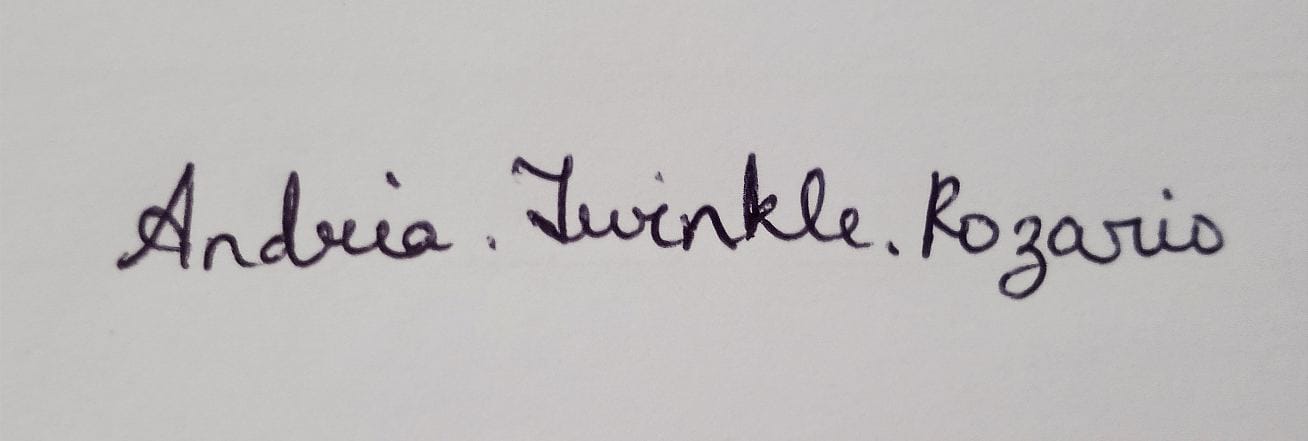 Andria . Twinkle. Rozario